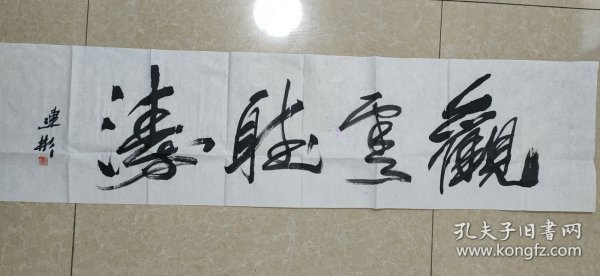 觀雲聽濤
連彬
孔夫子旧书网
www.kongfz.com